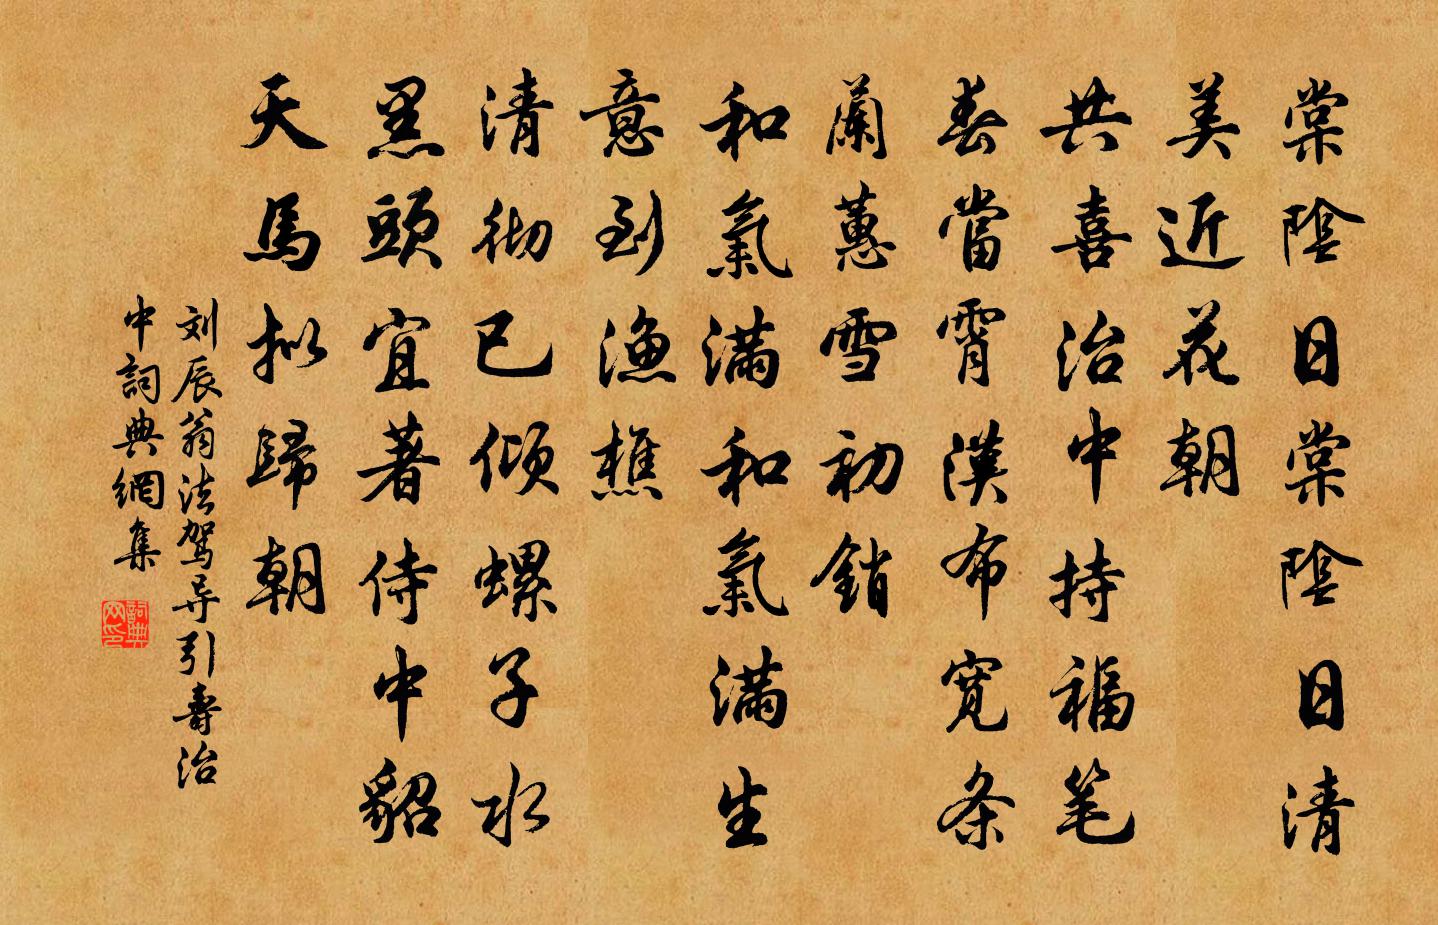 棠陰日棠陰日清
美近花朝
共喜治中持福笔
春當霄漢布宽条
蘭蕙雪初銷
和氣滿和氣滿生
意到漁樵
清彻已倾螺子水
黑頭宜著侍中貂
天馬拟歸朝
刘辰翁法驾导引壽治
中詞典網集
詞典网印